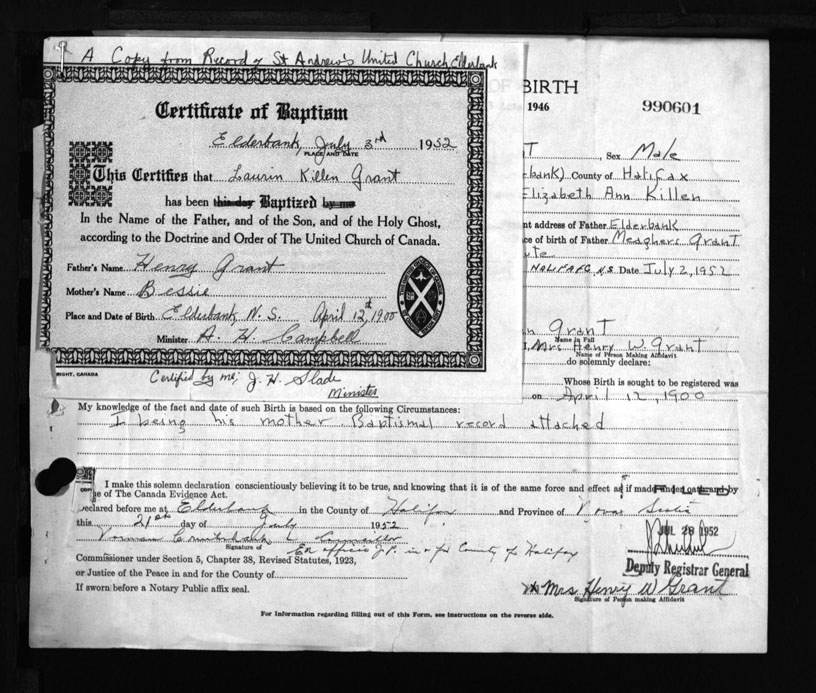 A Copy from Record of St Andrew's United Church, Elderbank
Certificate of Baptism
Elderbank, July 3rd 1952
PLACE AND DATE
This Certifies that Laurin Killen Grant
has been this day Baptized by me
In the Name of the Father, and of the Son, and of the Holy Ghost,
according to the Doctrine and Order of The United Church of Canada.
Father's Name Henry Grant
Mother's Name Bessie
Place and Date of Birth Elderbank, N.S. April 12th, 1900
Minister A. H. Campbell
RIGHT, CANADA
Certified by me; J. H. Slade
Minister
BIRTH
1946
990601
T, Sex Male
rbank) County of Halifax
Elizabeth Ann Killen
nt address of Father Elderbank
ce of birth of Father Meaghers Grant
ute
HALIFAX, N.S. Date July 2, 1952
n Grant
Name in Full
Mrs Henry W. Grant
Name of Person Making Affidavit
do solemnly declare:
Whose Birth is sought to be registered was
on April 12, 1900
My knowledge of the fact and date of such Birth is based on the following Circumstances:
I being his mother. Baptismal record attached
I make this solemn declaration conscientiously believing it to be true, and knowing that it is of the same force and effect as if made under oath and by
e of The Canada Evidence Act.
eclared before me at Elderbank in the County of Halifax and Province of Nova Scotia
this 21st day of July 1952
FILED
JUL 28 1952
Deputy Registrar General
Norman Councillor
Signature of
Ex officio J.P. in & for County of Halifax
Commissioner under Section 5, Chapter 38, Revised Statutes, 1923,
or Justice of the Peace in and for the County of
If sworn before a Notary Public affix seal.
Mrs Henry W Grant
Signature of Person making Affidavit
For Information regarding filling out of this Form, see instructions on the reverse side.